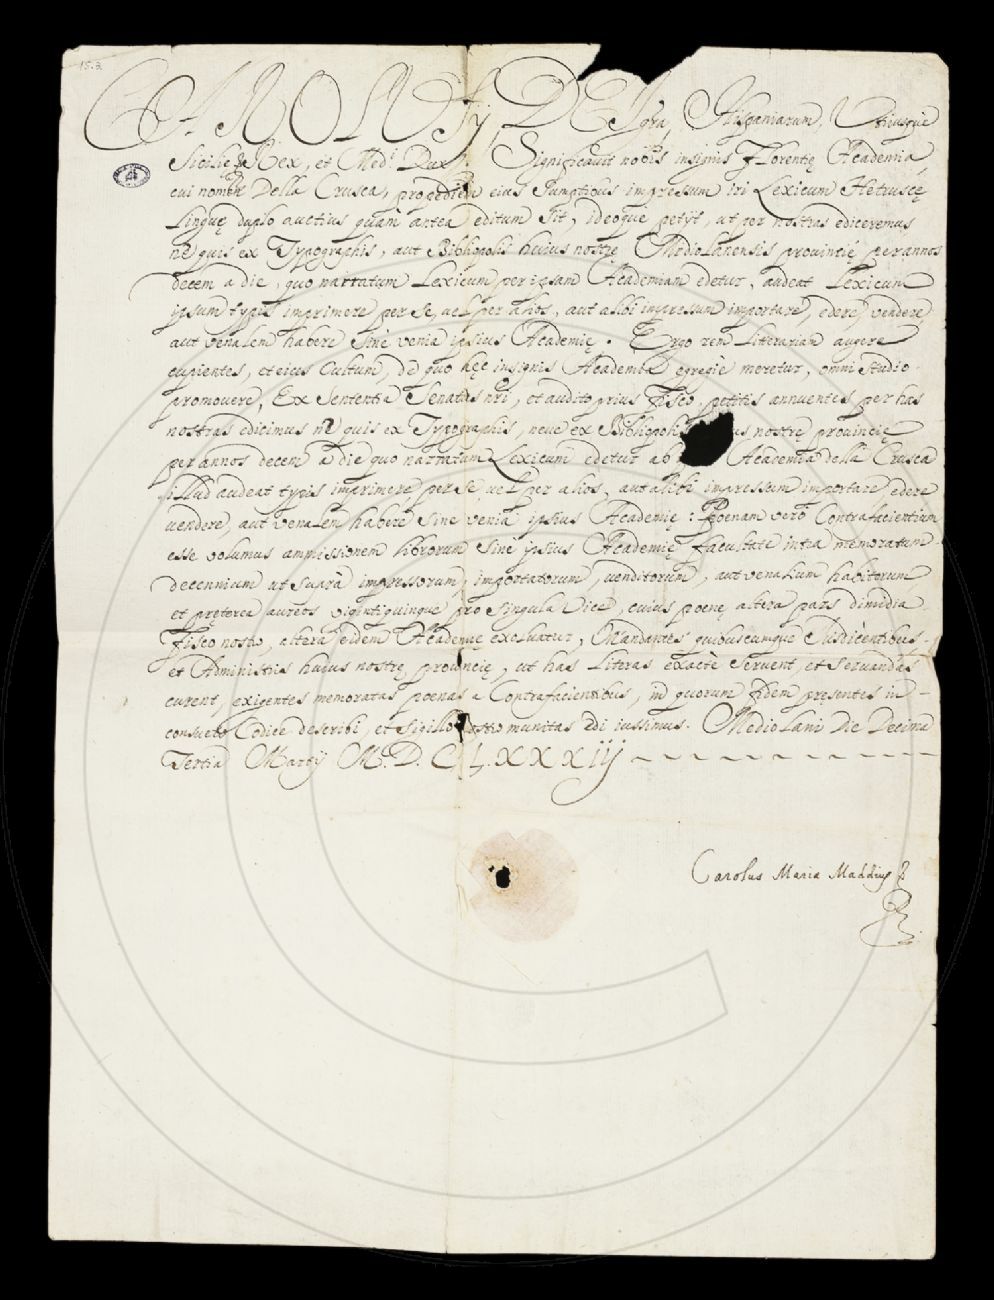 15.3
CAROLUS II DEI gra Hispaniarum, Utriusque
Sicilię &c Rex, et Medi Dux &c. Significavit nobis insignis Florentię Academia,
cui nomen Della Crusca, prope diem eius sumptibus impressum iri Lexicum Hetruscę
Linguę duplo auctius quàm antea editum sit, ideoque petyt, ut per nostras ediceremus
nè quis ex Typographis, aut Bibliopolis huius nostrę Mediolanensis provintię per annos
decem a die, quo narratum Lexicum per ipsam Academiam edetur, audeat Lexicum
ipsum typis imprimere per se, vel per alios, aut alibi impressum importare, edere, vendere,
aut venalem habere sine venia ipsius Academię. Ergo rem Litterariam augere
cupientes, et eius cultum, de quo hęc insignis Academia egregiè meretur, omni studio
promovere, Ex Sententia Senatus nri, et audito prius Fisco, petitis annuentes per has
nostras edicimus nè quis ex Typographis, neve ex Bibliopolis us nostrę provincię
per annos decem à die quo narratum Lexicum edetur ab Academia della Crusca
illud audeat typis imprimere, per se vel per alios, aut alibi impressum importare, edere
vendere, aut venalem habere sine venia ipsius Academię: Poenam verò Contrafacientium
esse volumus ammissionem librorum sinè ipsius Academię facultate intra memoratum
decennium ut suprà impressorum, importatorum, venditorum, aut venalium habitorum
et pręterea aureos vigintiquinque pro singula vice, cuius poenę altera pars dimidia
Fisco nostro, altera eidem Academię exolvatur, Mandantes quibuscumque Iusdicentibus
et Administris huius nostrę provincię, ut has Literas exactè servent, et servandas
curent, exigentes memoratas poenas a Contrafacientibus, in quorum fidem pręsentes in
consueto Codice describi, et sigillo nostro munitas edi iussimus. Mediolani Die Decima
Tertia Martij M.D.CLXXXIIJ
Carolus Maria Maddius